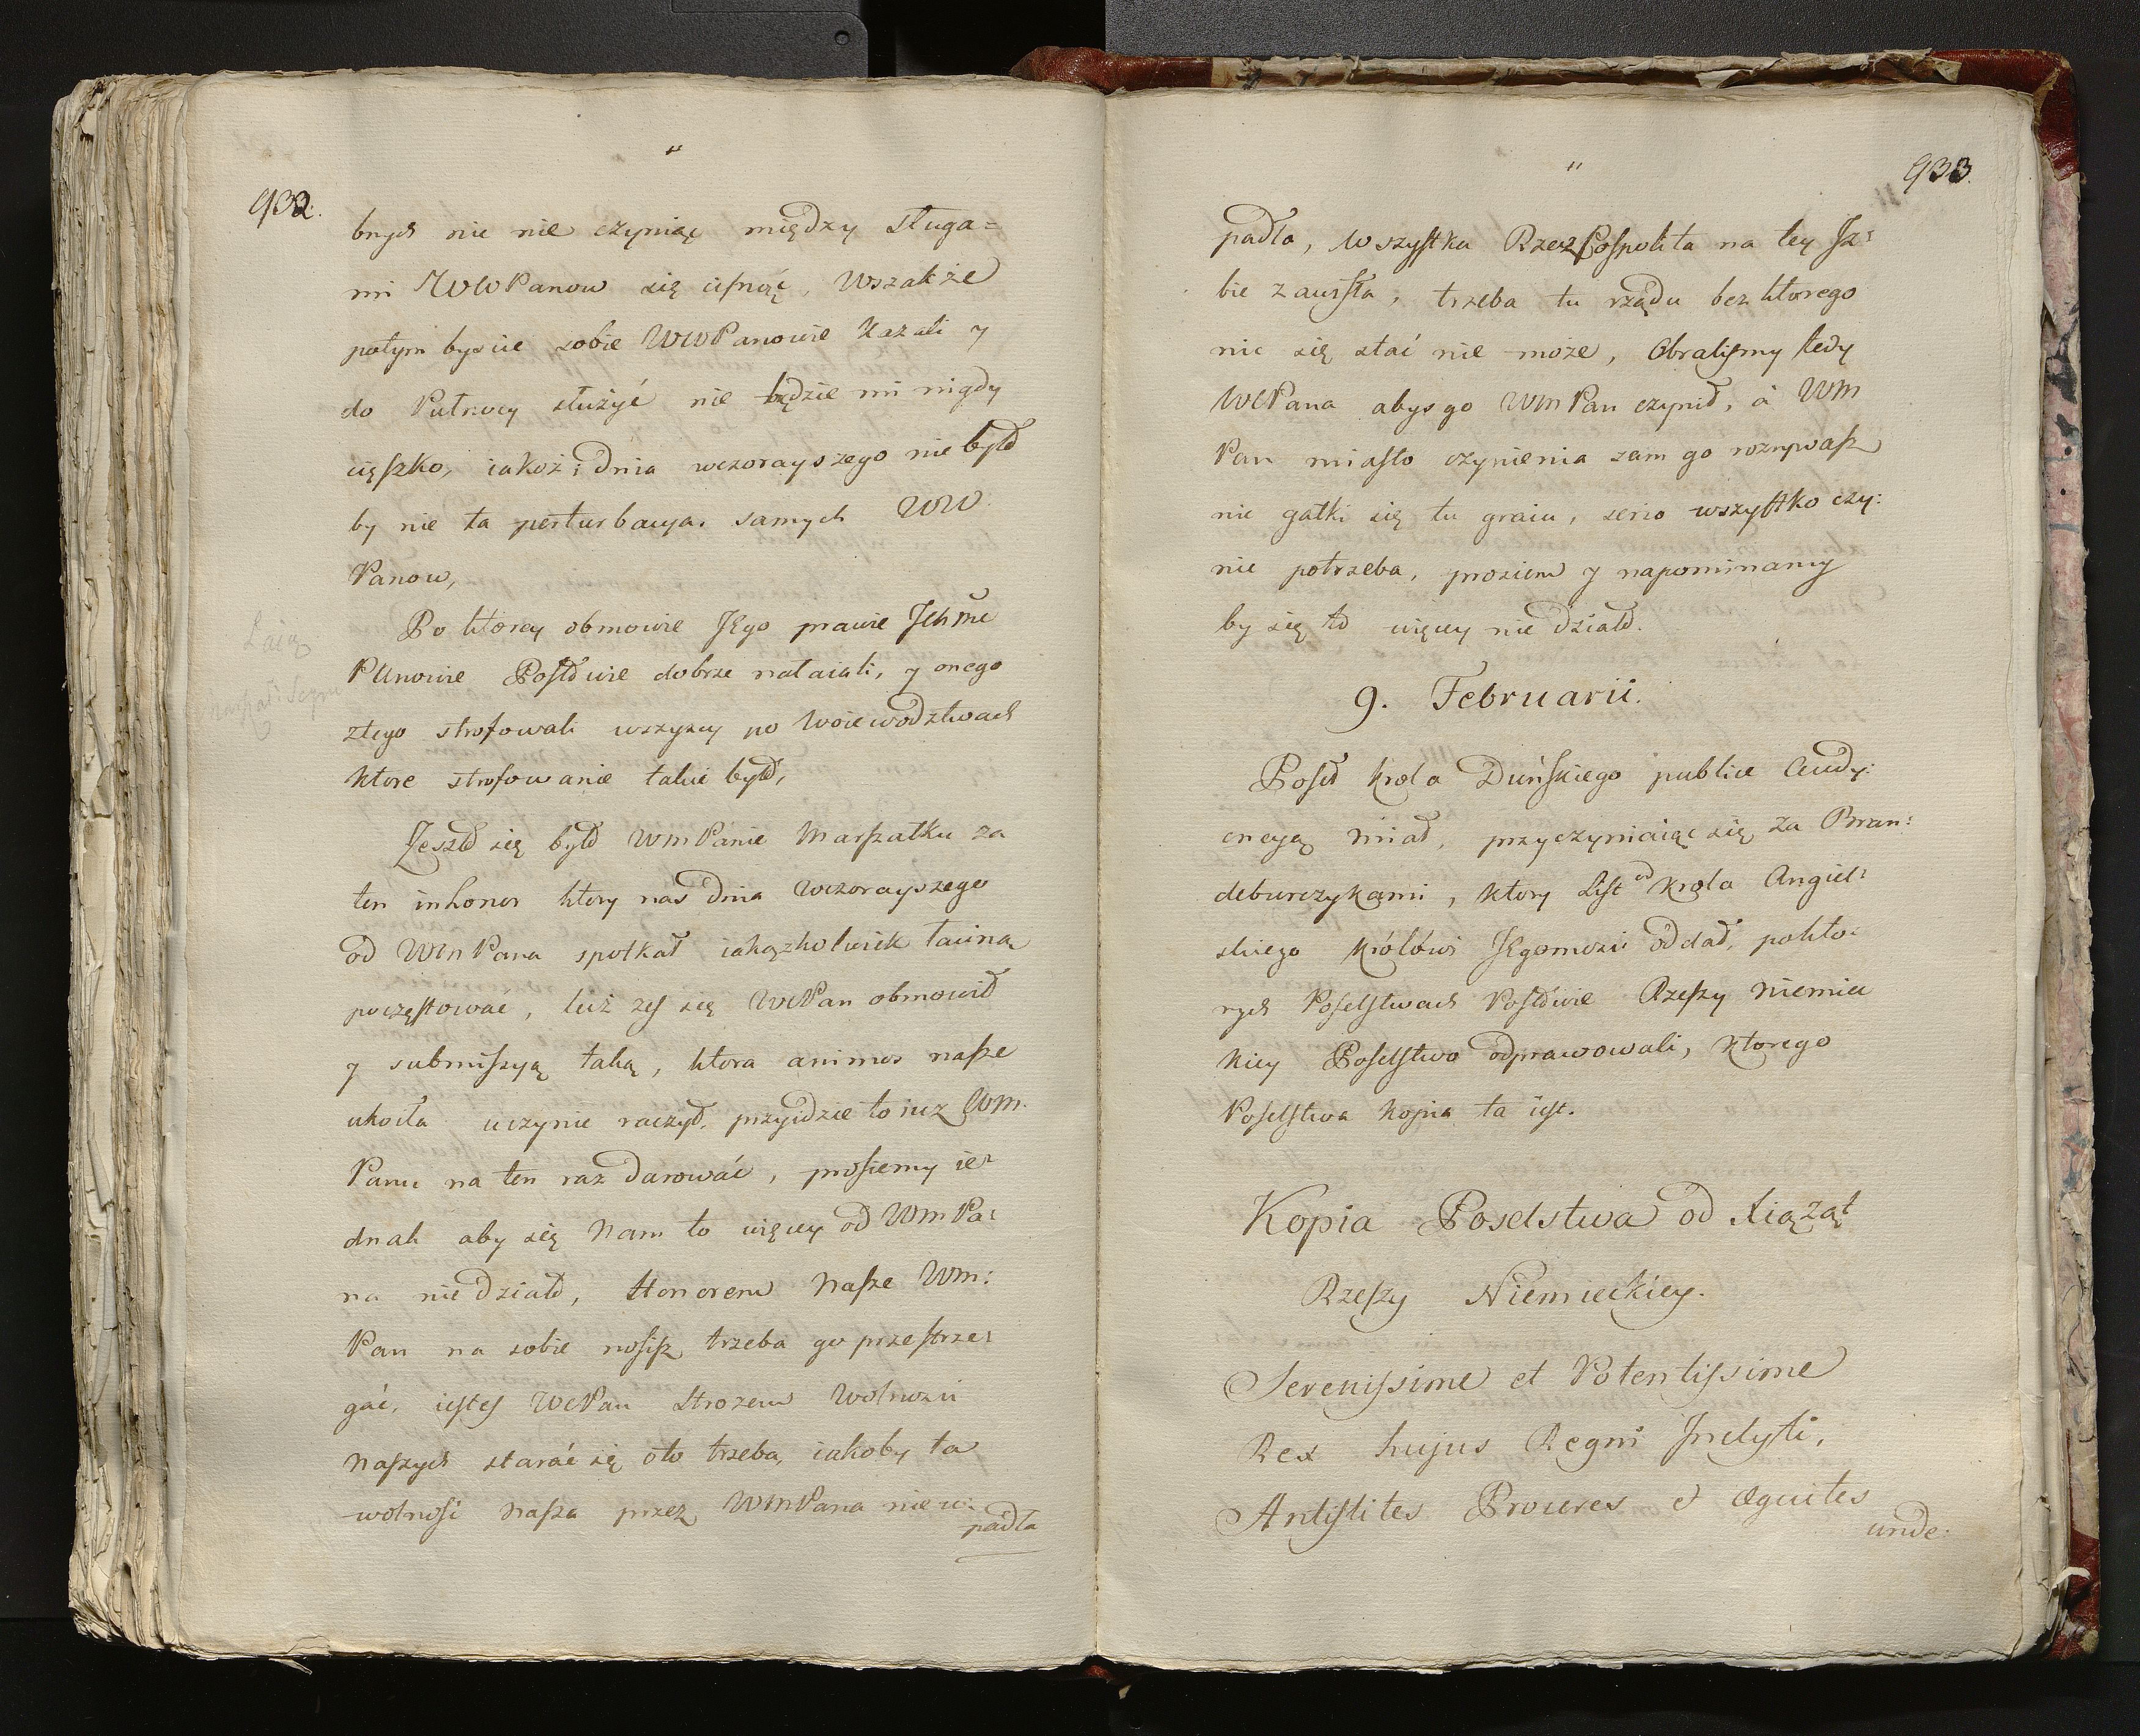 932.
brych nic nie czyniąc między sługa=
mi WWPanow się cisnąć, Wszakże
potym byscie sobie WWPanowie kazali y
do Putnocy służyć nie będzie mi nigdy
cięszko, iakoż i dnia wczorayszego nie było
by nie ta perturbacya samych WW
Panow,
Po ktorey obmowie JEgo prawie Ichmć
PUnowie Posłowie dobrze nałaiali, y onego
złego strofowali wszyscy po Woiewodztwach
ktore strofowanie takie było,
Łaią
Zeszło się było WmPanie Marszałku za
ten inhonor ktory nas dnia wczorayszego
od WmPana spotkał iakązkolwiek łaciną
poczęstować, lecż żeś się WCPan obmowił
y submiszyą taką, ktora animos nasze
ukoiła uczynic raczył, przyidzie to iuz WM.
Panu na ten raz darować, prosiemy ie=
dnak aby się Nam to więcey od WmPa=
na nie działo, Honorem Nasze Wm:
Pan na sobie nosisz trzeba go przestrze=
gać, iesteś WCPan Strożem Wolności
Naszych starać się oto trzeba, iakoby ta
wolność Nasza przez WmPana nie w:
padła
933.
padła, Wszystka RzeczPospolita na tey Iz=
bie zawisła, trzeba tu rządu bez ktorego
nic się stać nie może, Obralismy tedy
WCPana abys go WmPan czynił, à WM
Pan miasto czynienia sam go rozrywasz
nie gałki się tu graiu, serio wszystko czy:
nić potrzeba, prosiem y napominamy
by się to więcey nie działo.
9. Februarii.
Poseł krola Duńskiego publice Audy:
encyą miał, przyczyniaiąc się za Bran:
deburczykami, ktory List od Krola Angiel=
skiego Królówi JEgomości oddał, po kto=
rych Poselstwach Posłowie Rzeszy Niemiec
kiey Poselstwo odprawowali, ktorego
Poselstwa kopia ta iest.
Kopia Poselstwa od Xiążąt
Rzeszy Niemieckiey.
Serenissime et Potentissime
Rex hujus Regni Inclyti,
Antistites Proceres et Equites
unde: